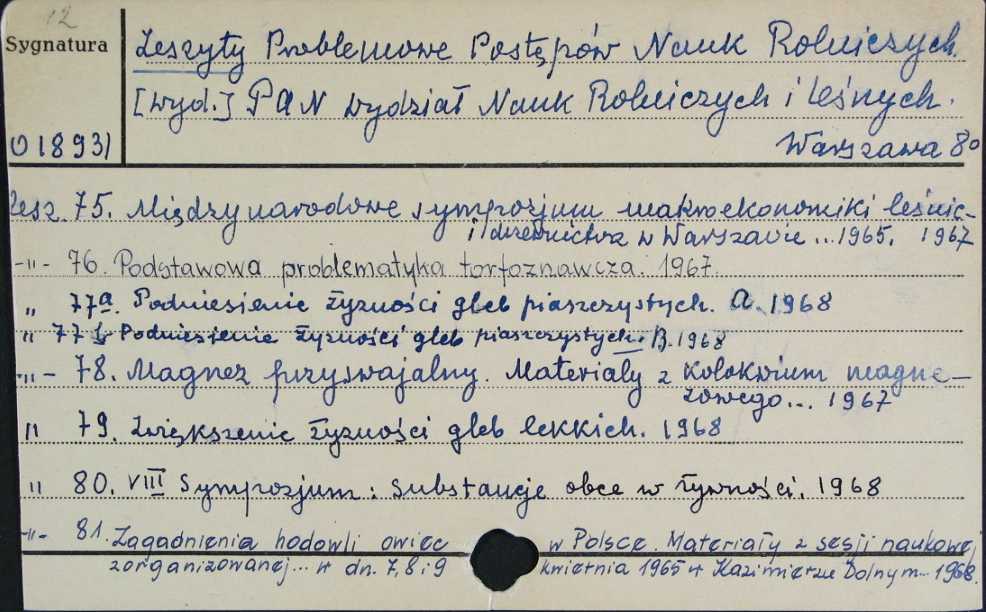 12
Sygnatura
Zeszyty Problemowe Postępów Nauk Rolniczych
[wyd.] PAN Wydział Nauk Rolniczych i Leśnych.
O 1893/
Warszawa 8°
Zesz. 75. Międzynarodowe sympozjum makroekonomiki leśnic-
i drzewnictwa w Warszawie ... 1965. 1967
-"- 76. Podstawowa problematyka torfoznawcza. 1967.
" 77a. Podniesienie żyzności gleb piaszczystych. A. 1968
" 77b. Podniesienie żyzności gleb piaszczystych. B. 1968
-"- 78. Magnez przyswajalny. Materiały z kolokwium magne-
zowego... 1967
" 79. Zwiększenie żyzności gleb lekkich. 1968
" 80. VIII Sympozjum: substancje obce w żywności. 1968
-"- 81. Zagadnienia hodowli owiec w Polsce. Materiały z sesji naukowej
zorganizowanej... w dn. 7, 8 i 9 kwietnia 1965 w Kazimierzu Dolnym... 1968.